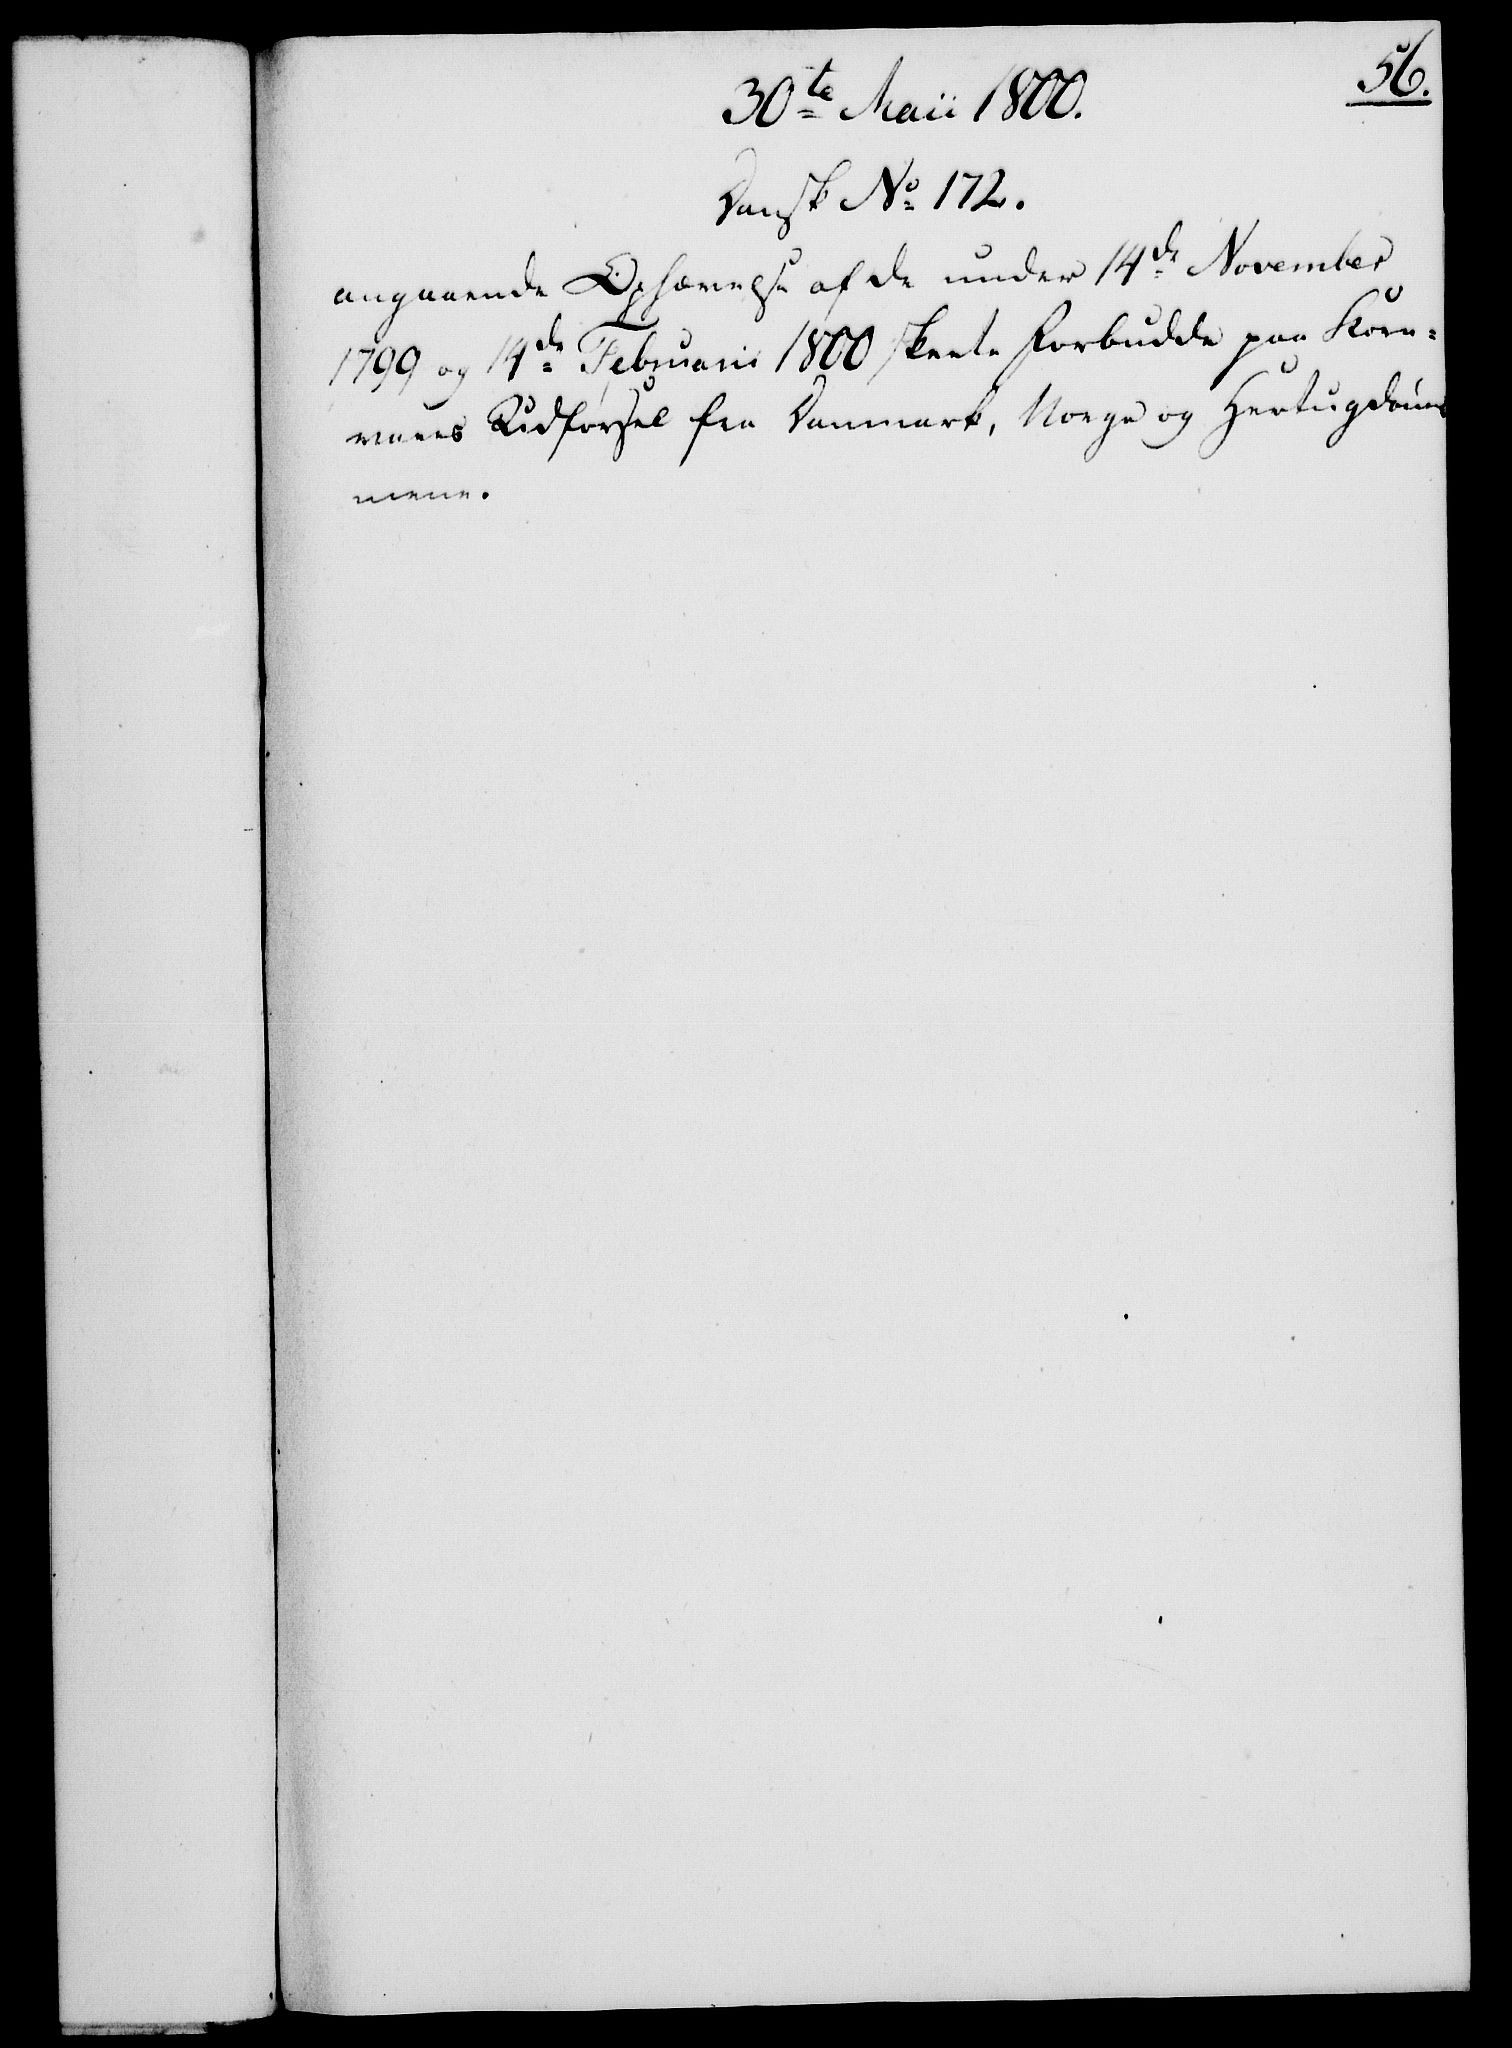 56.
30te Maii 1800.
Dansk No 172.
angaaende Ophævelse af de under 14de November
1799 og 14de Februarii 1800 skeete Forbudde paa Korn=
vares Udførsel fra Danmark, Norge og Hertugdøm=
mene.